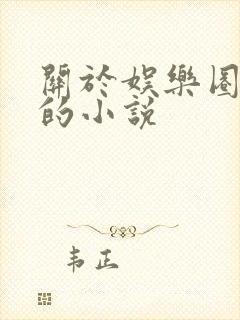 關於娛樂圈
的小說
韦正